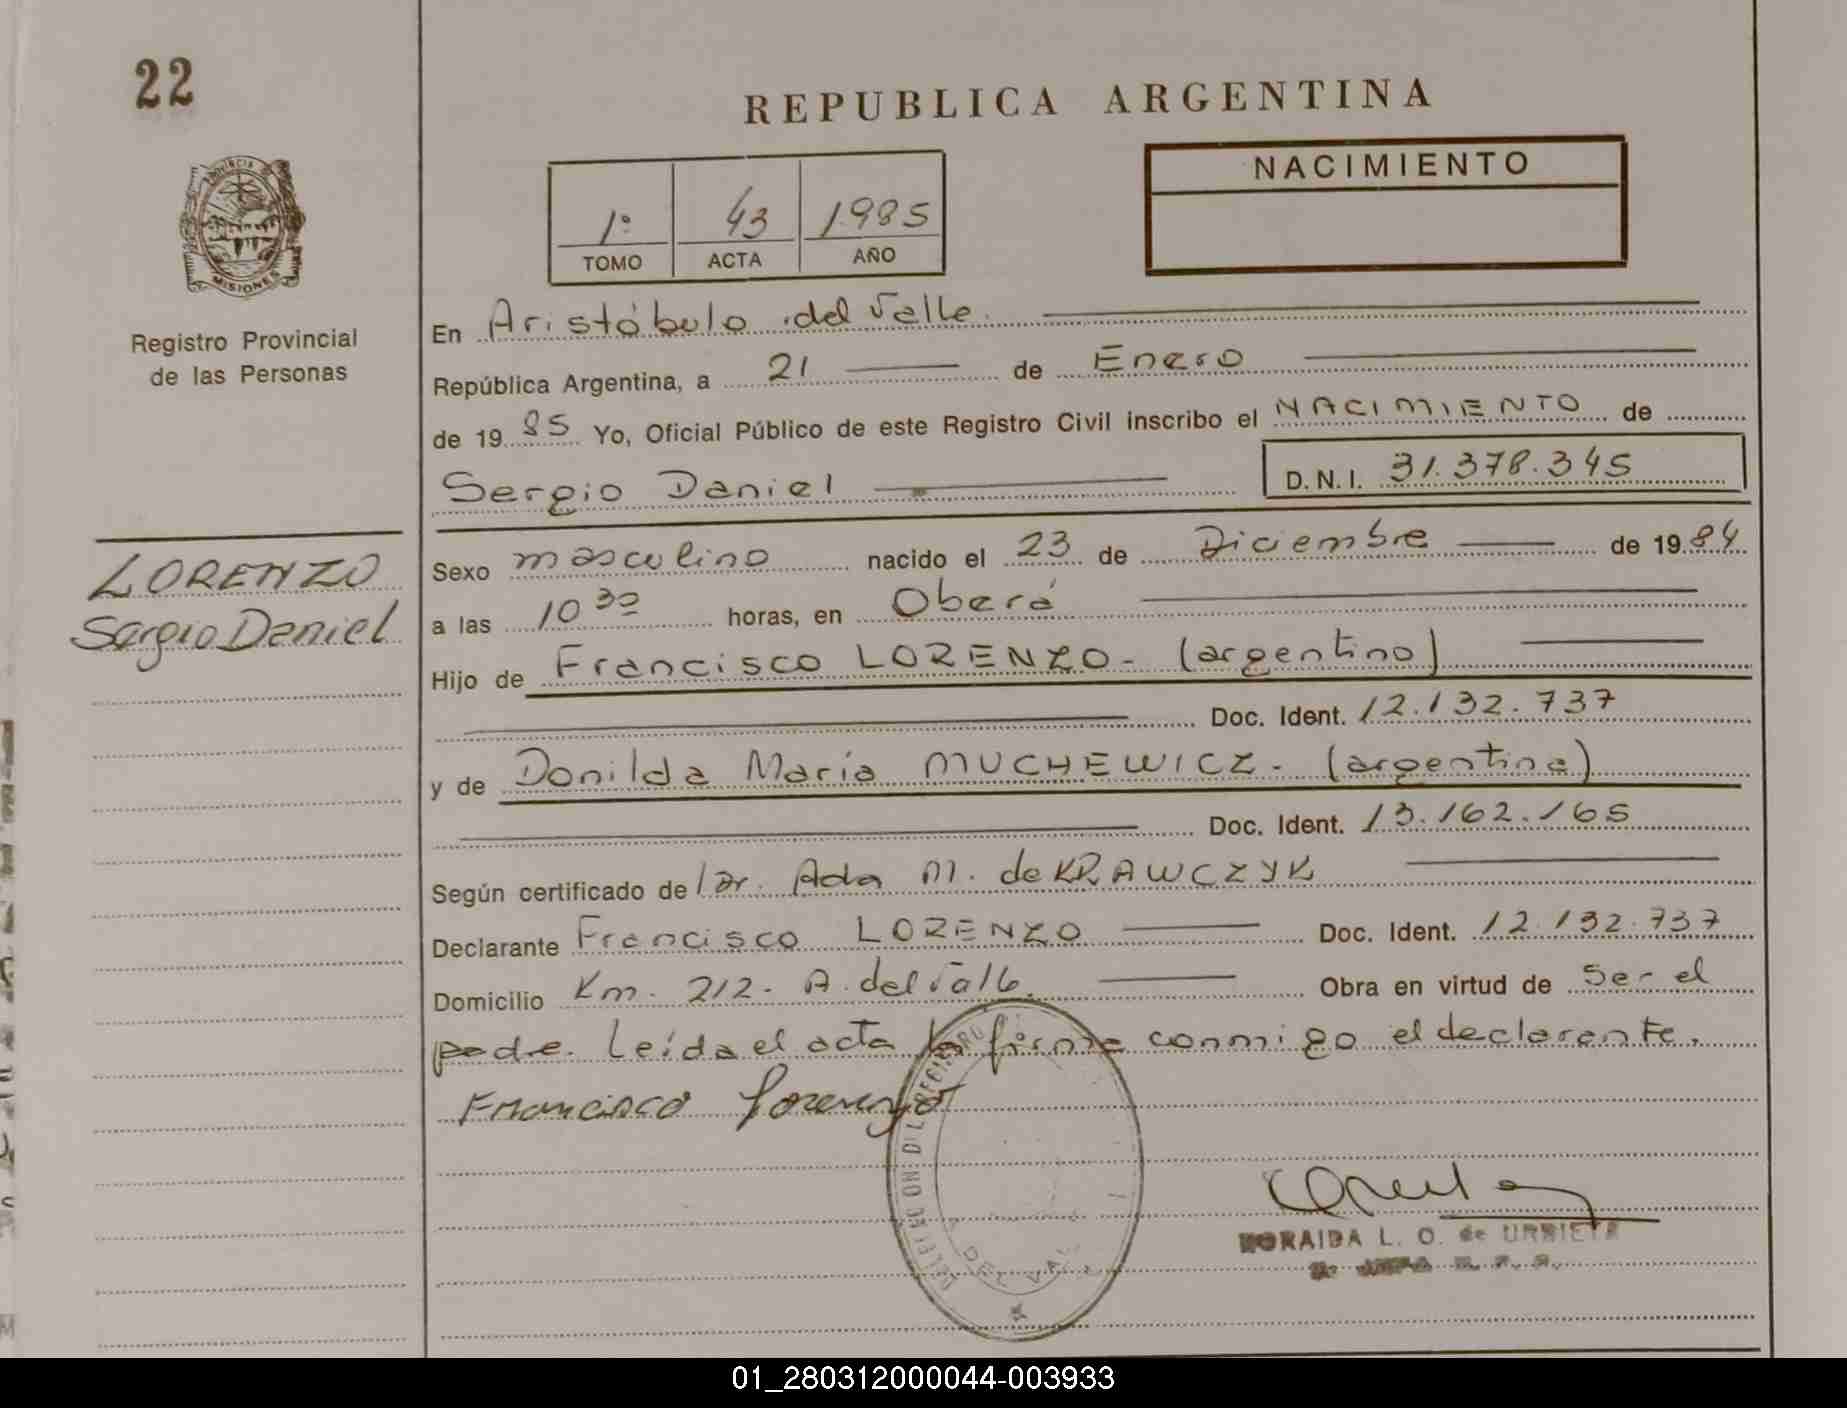 22
REPUBLICA ARGENTINA
PROVINCIA DE
MISIONES
Registro Provincial
de las Personas
1º 43 1.985
TOMO ACTA AÑO
NACIMIENTO
En Aristóbulo del Valle
República Argentina, a 21 de Enero
de 19 85 Yo, Oficial Público de este Registro Civil inscribo el NACIMIENTO de
Sergio Daniel D.N.I. 31.378.345
LORENZO
Sergio Daniel
Sexo masculino nacido el 23 de Diciembre de 19 84
a las 10 30 horas, en Oberá
Hijo de Francisco LORENZO - (argentino)
Doc. Ident. 12.132.737
y de Donilda María MUCHEWICZ - (argentina)
Doc. Ident. 13.162.165
Según certificado de Dr. Ada M. de KRAWCZYK
Declarante Francisco LORENZO Doc. Ident. 12.132.737
Domicilio Km. 212 - A. del Valle Obra en virtud de Ser el
padre. Leída el acta la firma conmigo el declarante.
Francisco Lorenzo
DEL VAL
HORAIDA L. O. de URRIETA
01_280312000044-003933